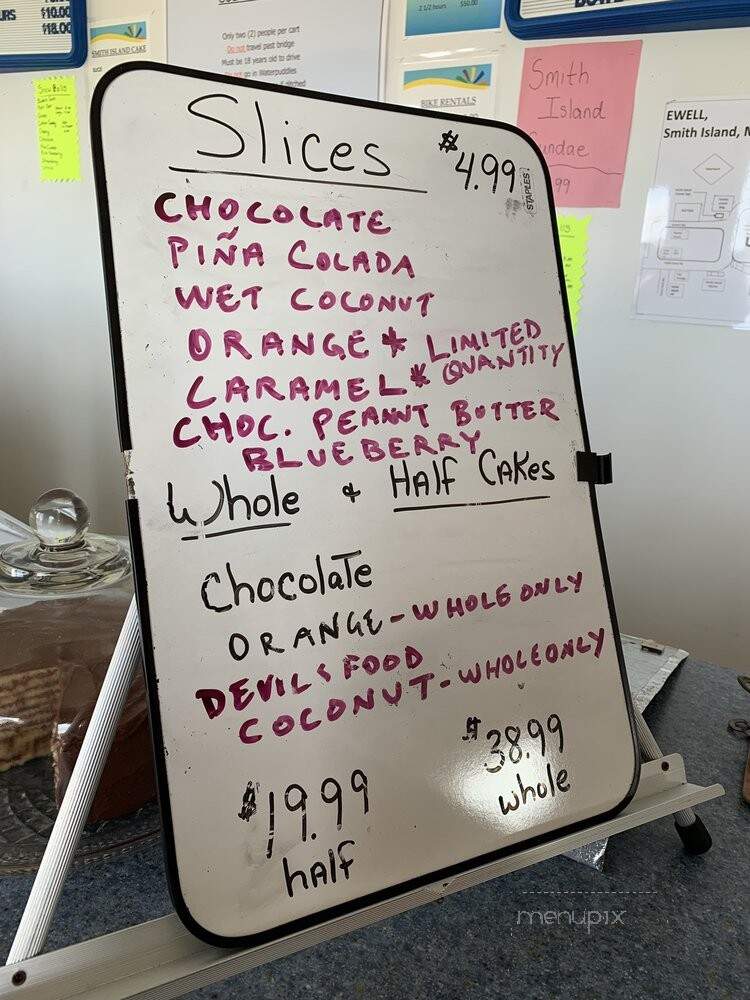 URS
$10.00
$18.00
SMITH ISLAND CAKE
Only two (2) people per cart
Do not travel past bridge
Must be 18 years old to drive
Do not go in Waterpuddles
2 1/2 hours $50.00
BIKE RENTALS
Smith
Island
Sundae
99
EWELL,
Smith Island, M
Slices $4.99
STAPLES
CHOCOLATE
PIÑA COLADA
WET COCONUT
ORANGE * LIMITED
CARAMEL * QUANTITY
CHOC. PEANNT BUTTER
BLUEBERRY
Whole & HAlf CAKes
Chocolate
ORANGE - WHOLE ONLY
DEVILS FOOD
COCONUT - WHOLE ONLY
$19.99
hAlf
$38.99
whole
menupix